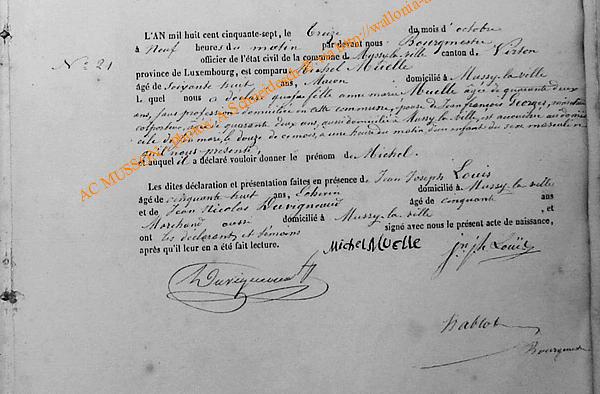 L'AN mil huit cent cinquante-sept, le Treize du mois d'octobre
à Neuf heures du matin par devant nous Bourgmestre
officier de l'état civil de la commune de Mussy-la-ville canton de Virton
Nº 21
province de Luxembourg, est comparu Michel Muelle
âgé de Soixante huit ans, Macon domicilié à Mussy-la-ville
L quel nous a déclaré que sa fille anne marie Muelle âgée de quarante deux
ans, sans profession domiciliée en cette commune, épouse de Jean françois Georges,
colporteur, âgé de quarante deux ans, aussi domicilié à Mussy la ville, est accouchée au domicile
de le douze de ce mois, à une heure du matin d'un enfant du sexe masculin
qu'il nous présente
et auquel il a déclaré vouloir donner le prénom de Michel.
Les dites déclaration et présentation faites en présence de Jean Joseph Louis
âgé de cinquante huit ans, domicilié à Mussy-la-ville
et de Jean Nicolas Duvigneaud âgé de cinquante ans
Marchand aussi domicilié à Mussy-la-ville , et
ont les déclarant et témoins signé avec nous le présent acte de naissance,
après qu'il leur en a été fait lecture.
Michel Muelle
Jn jh Louis
Duvigneaud
Bourgmestre
AC MUSSON